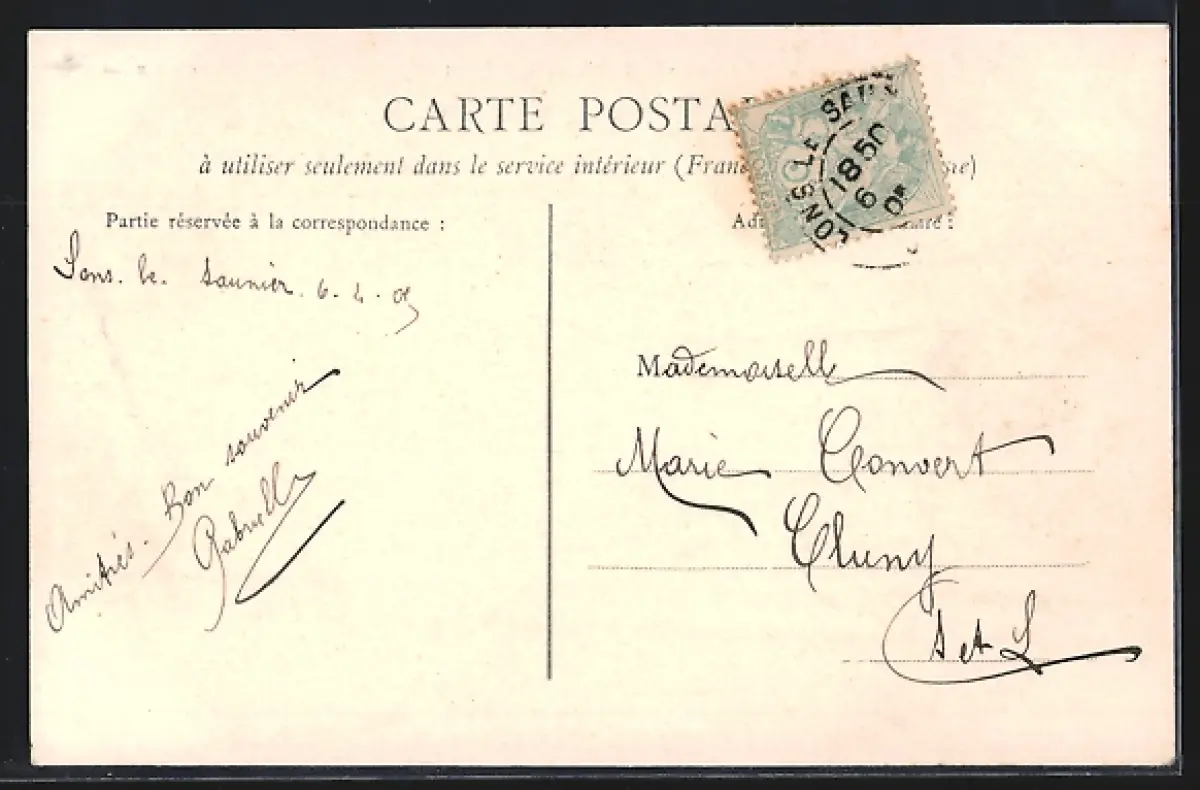 CARTE POSTA
à utiliser seulement dans le service intérieur (Fran
Partie réservée à la correspondance :
Lons. le. Saunier. 6. 4. 05
Amitiés. Bon souvenir
Gabrielle
LONS LE SAU
18 50
6
Mademoiselle
Marie Convert
Cluny
S et L